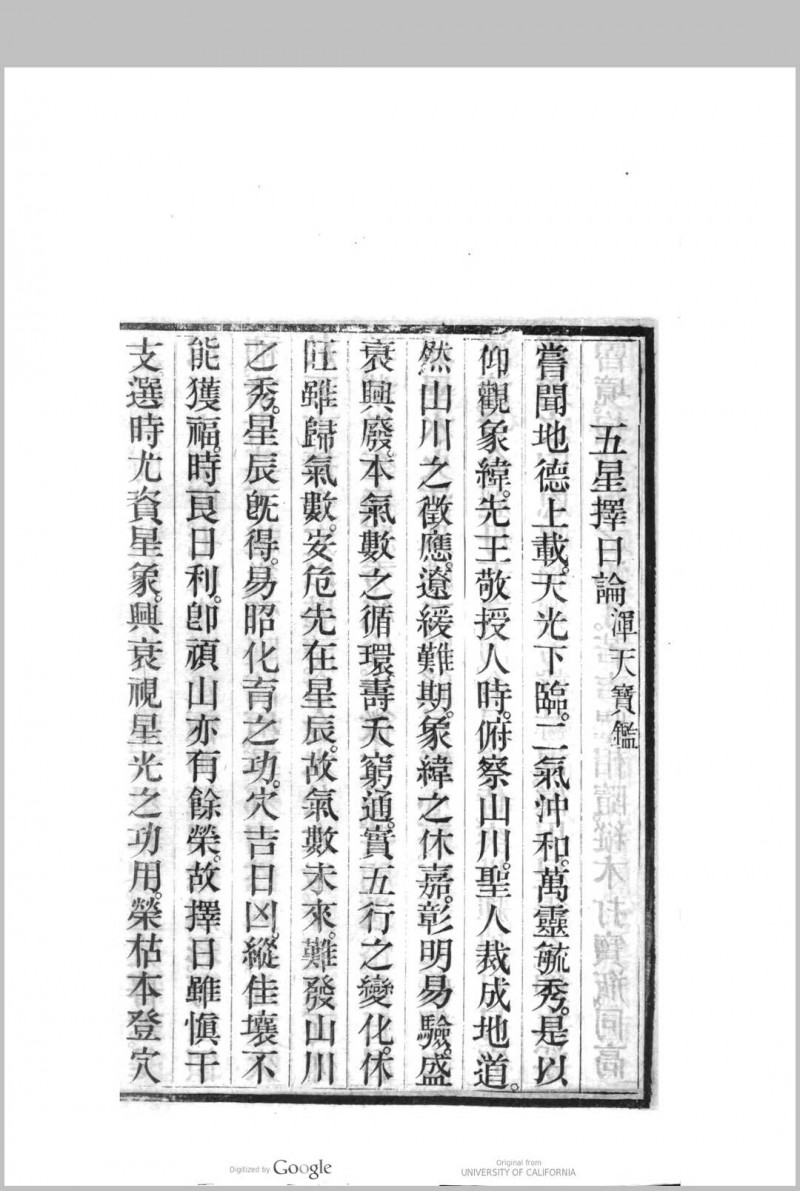 五星擇日論渾天寶鑑
嘗聞地德上載。天光下臨。二氣沖和。萬靈毓秀。是以
仰觀象緯。先王敬授人時。俯察山川。聖人裁成地道。
然山川之徵應。遼緩難期。象緯之休嘉。彰明易驗。盛
衰興廢。本氣數之循環。壽夭窮通。實五行之變化。休
旺雖歸氣數。安危先在星辰。故氣數未來。難發山川
之秀。星辰旣得。易昭化育之功。穴吉日凶。縱佳壤不
能獲福。時良日利。卽頑山亦有餘榮。故擇日雖愼干
支。選時尤資星象。興衰視星光之功用。榮枯本登穴
Digitized by Google
Original from
UNIVERSITY OF CALIFORNIA